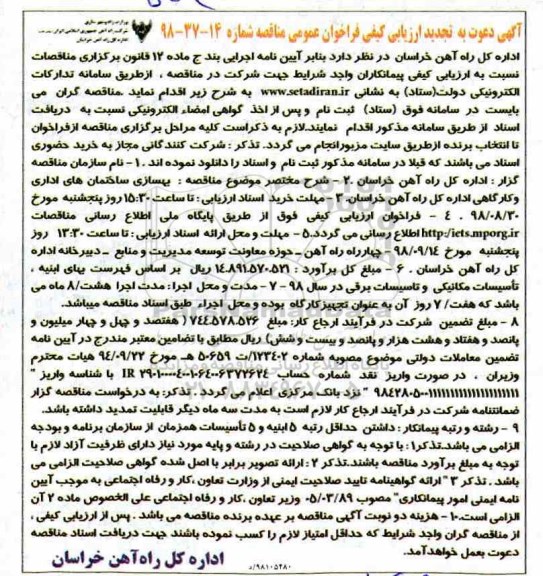 وزارت راه و شهرسازی
شرکت راه آهن جمهوری اسلامی ایران
اداره کل راه آهن خراسان
آگهی دعوت به تجدید ارزیابی کیفی فراخوان عمومی مناقصه شماره ۱۴-۳۷-۹۸
اداره کل راه آهن خراسان در نظر دارد بنابر آیین نامه اجرایی بند ج ماده ۱۲ قانون برگزاری مناقصات
نسبت به ارزیابی کیفی پیمانکاران واجد شرایط جهت شرکت در مناقصه ، ازطریق سامانه تدارکات
الکترونیکی دولت(ستاد) به نشانی www.setadiran.ir به شرح زیر اقدام نماید .مناقصه گران می
بایست در سامانه فوق (ستاد) ثبت نام و پس از اخذ گواهی امضاء الکترونیکی نسبت به دریافت
اسناد از طریق سامانه مذکور اقدام نمایند.لازم به ذکراست کلیه مراحل برگزاری مناقصه ازفراخوان
تا انتخاب برنده ازطریق سایت مزبورانجام می گردد. تذکر : شرکت کنندگانی مجاز به خرید حضوری
اسناد می باشند که قبلا در سامانه مذکور ثبت نام و اسناد را دانلود نموده اند .۱- نام سازمان مناقصه
گزار : اداره کل راه آهن خراسان .۲- شرح مختصر موضوع مناقصه : بهسازی ساختمان های اداری
وکارگاهی اداره کل راه آهن خراسان.۳- مهلت خرید اسناد ارزیابی : تا ساعت ۱۵:۳۰ روز پنجشنبه مورخ
۹۸/۰۸/۳۰ . ۴ - فراخوان ارزیابی کیفی فوق از طریق پایگاه ملی اطلاع رسانی مناقصات
http:/iets.mporg.ir اطلاع رسانی می گردد.۵ - مهلت و محل ارائه اسناد ارزیابی : تا ساعت ۱۳:۳۰ روز
پنجشنبه مورخ ۹۸/۰۹/۱۴ - چهارراه راه آهن - حوزه معاونت توسعه مدیریت و منابع - دبیرخانه اداره
کل راه آهن خراسان . ۶ - مبلغ کل برآورد : ۱۴،۸۹۱،۵۷۰،۵۲۱ ریال بر اساس فهرست بهای ابنیه ،
تأسیسات مکانیکی و تاسیسات برقی در سال ۹۸ - ۷ - مدت و محل اجرا: مدت اجرا هشت/۸ ماه می
باشد که هفت/ ۷ روز آن به عنوان تجهیزکارگاه بوده و محل اجراء طبق اسناد مناقصه میباشد.
۸ - مبلغ تضمین شرکت در فرآیند ارجاع کار: مبلغ ۷۴۴،۵۷۸،۵۲۶ ( هفتصد و چهل و چهار میلیون و
پانصد و هفتاد و هشت هزار و پانصد و بیست و شش) ریال مطابق با تضامین معتبر مندرج در آیین نامه
تضمین معاملات دولتی موضوع مصوبه شماره ۱۲۳۴۰۲/ت ۵۰۶۵۹ هـ مورخ ۹۴/۰۹/۲۲ هیات محترم
وزیران . در صورت واریز نقد شماره حساب
با شناسه واریز "
" نزد بانک مرکزی اعلام می گردد . تذکر: به درخواست مناقصه گزار
ضمانتنامه شرکت در فرآیند ارجاع کار لازم است به مدت سه ماه دیگر قابلیت تمدید داشته باشد.
۹ - رشته و رتبه پیمانکار : داشتن حداقل رتبه ۵ ابنیه و ۵ تأسیسات همزمان از سازمان برنامه و بودجه
الزامی می باشد.تذکر۱ : با توجه به گواهی صلاحیت در رشته و پایه مورد نیاز دارای ظرفیت آزاد لازم با
توجه به مبلغ برآورد مناقصه باشند.تذکر ۲ : ارائه تصویر برابر با اصل شده گواهی صلاحیت الزامی می
باشد . تذکر ۳ "ارائه گواهینامه تایید صلاحیت ایمنی از وزارت تعاون ،کار و رفاه اجتماعی به موجب آیین
نامه ایمنی امور پیمانکاری" مصوب ۰۵/۰۳/۸۹ وزیر تعاون ،کار و رفاه اجتماعی علی الخصوص ماده ۲ آن
الزامی است.۱۰- هزینه دو نوبت آگهی مناقصه بر عهده برنده مناقصه می باشد . پس از ارزیابی کیفی ،
از مناقصه گران واجد شرایط که حداقل امتیاز لازم را کسب نموده باشند جهت دریافت اسناد مناقصه
دعوت بعمل خواهدآمد.
اداره کل راه‌آهن خراسان
۹۸۱۰۵۲۸۰/د